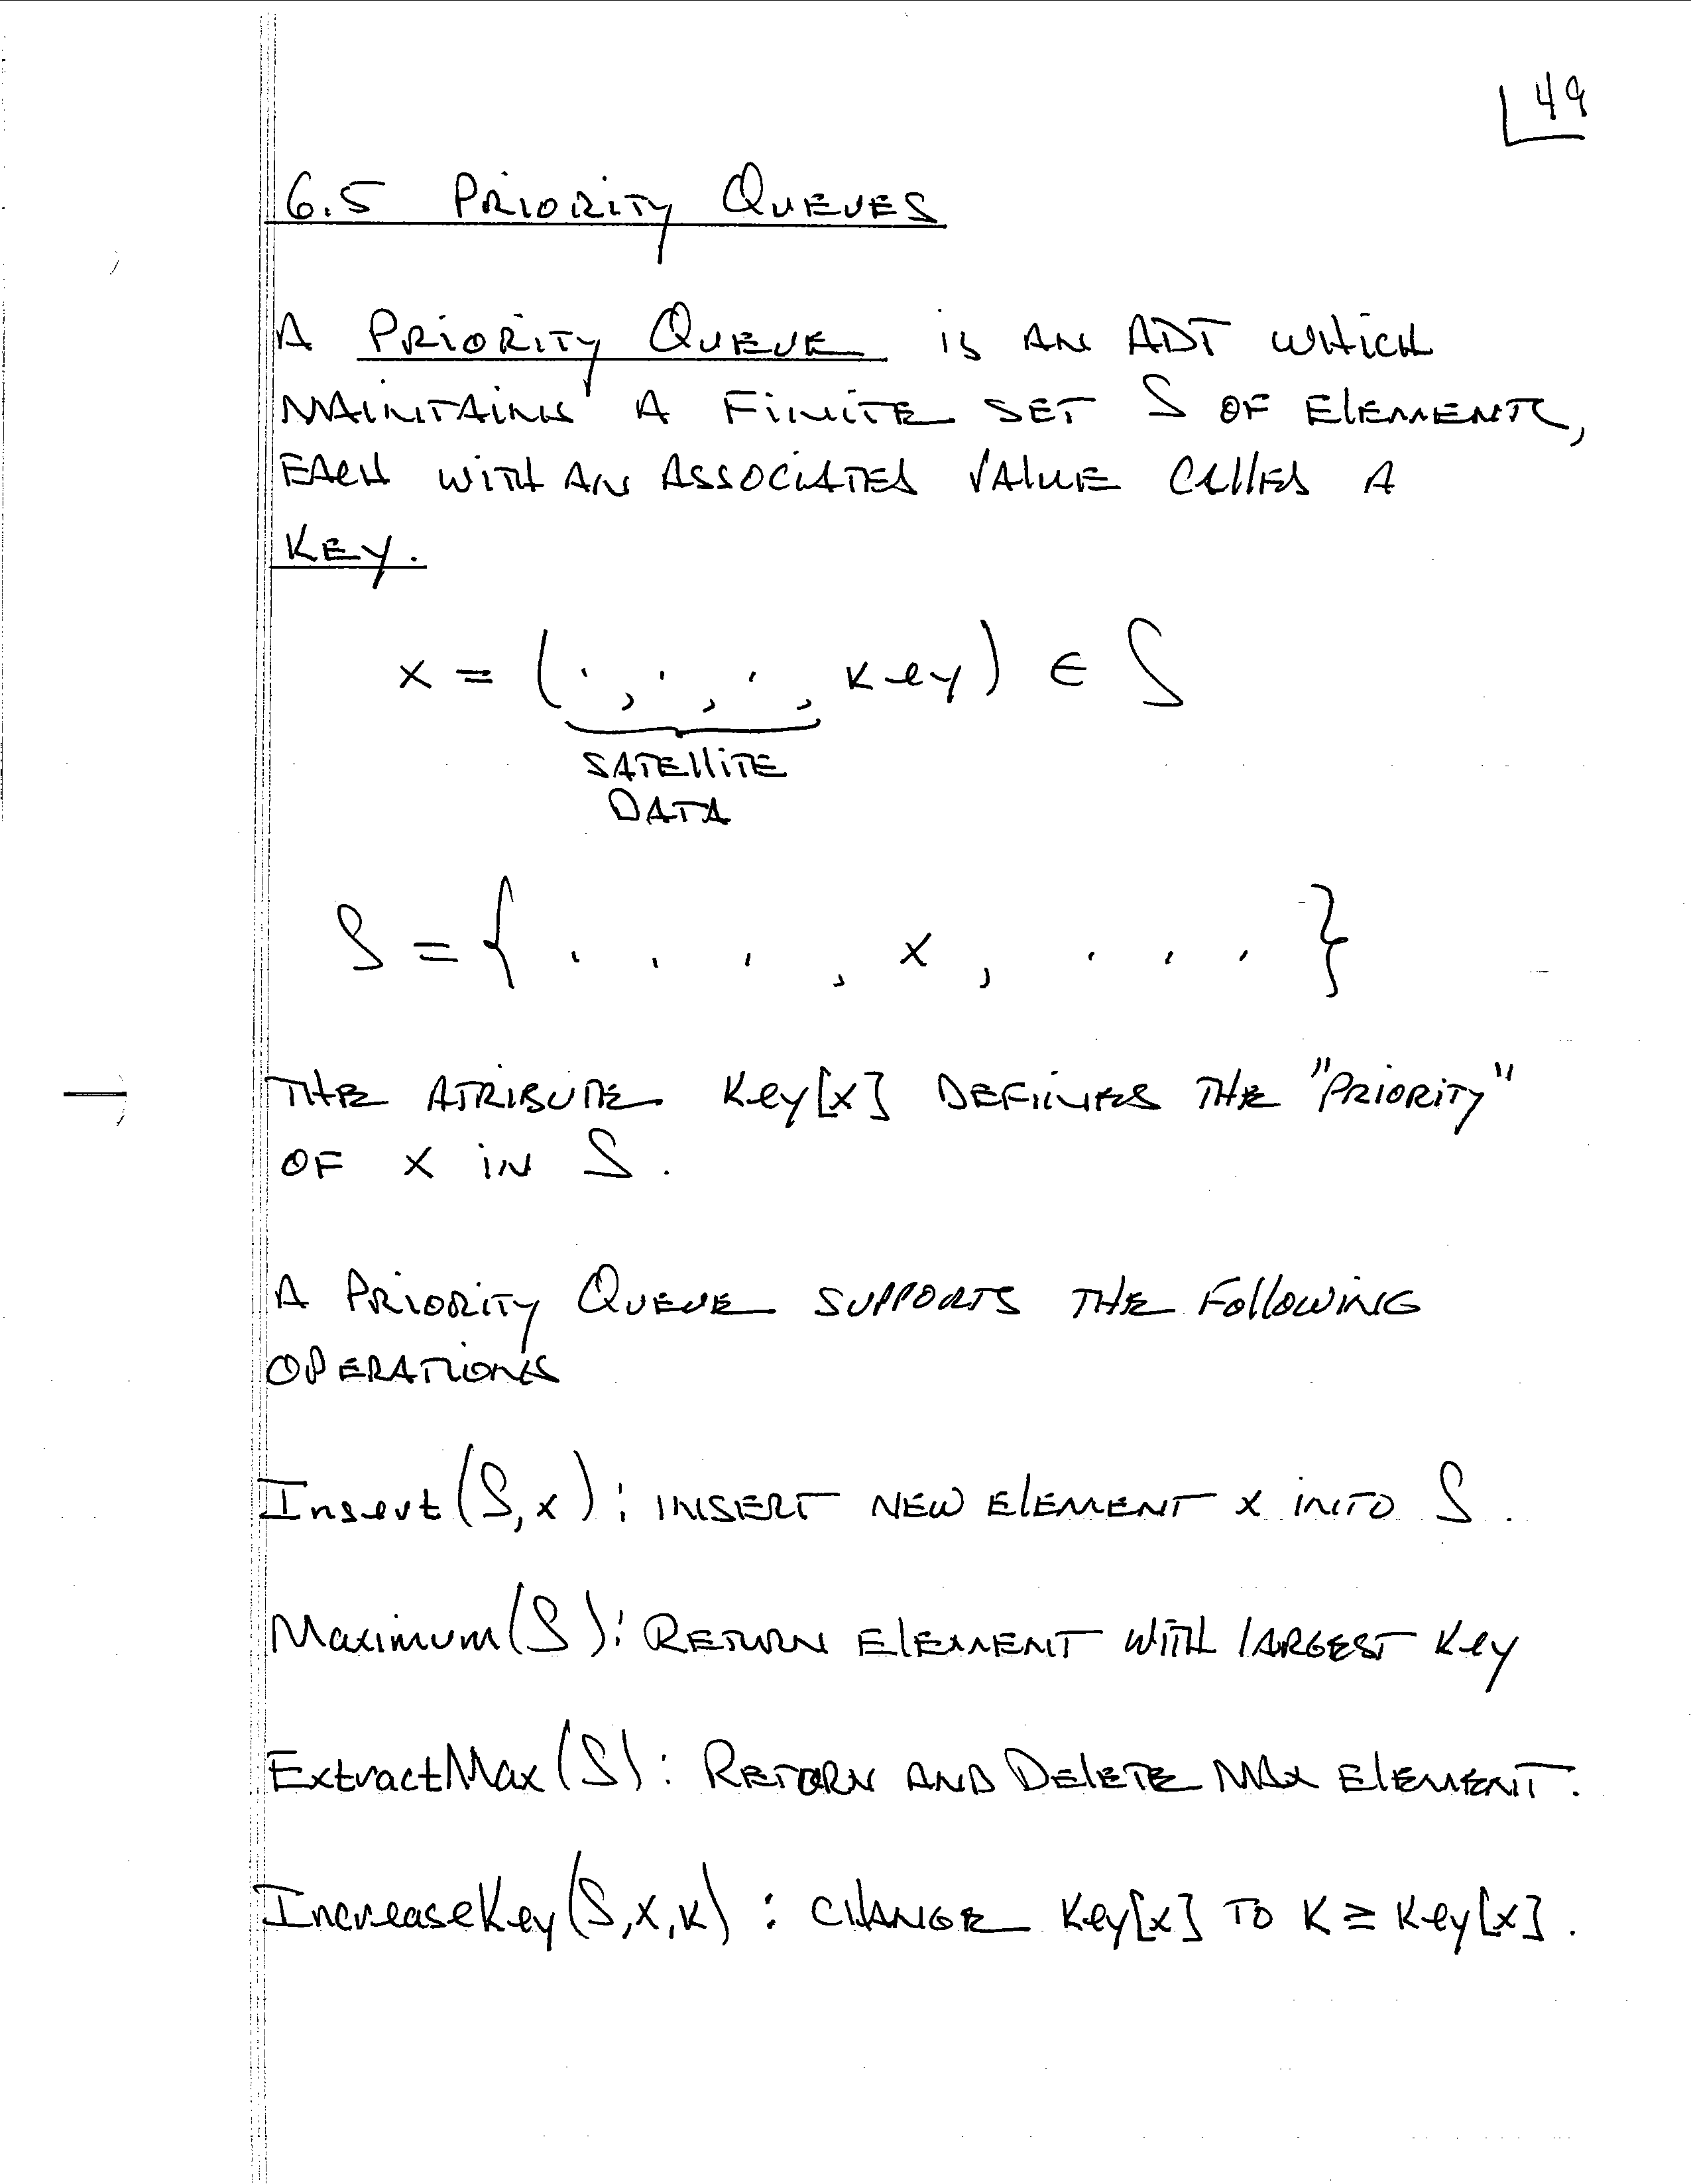 49
6.5 PRIORITY QUEUES
A PRIORITY QUEUE is AN ADT WHICH
MAINTAINS A FINITE SET S OF ElEMENTS,
EACH WITH AN ASSOCIATED VALUE CALLED A
KEY.
x = (·, ·, ·, key) ∈ S
SATELLITE
DATA
S = { . . . , x, . . . }
THE ATRIBUTE key[x] DEFINES THE "PRIORITY"
OF x IN S.
A PRIORITY QUEUE SUPPORTS THE FOLLOWING
OPERATIONS
Insert(S,x): INSERT NEW ELEMENT x INTO S.
Maximum(S): RETURN ELEMENT WITH LARGEST key
ExtractMax(S): RETURN AND DELETE MAX ELEMENT.
IncreaseKey(S,x,k): CHANGE key[x] TO k ≥ key[x].